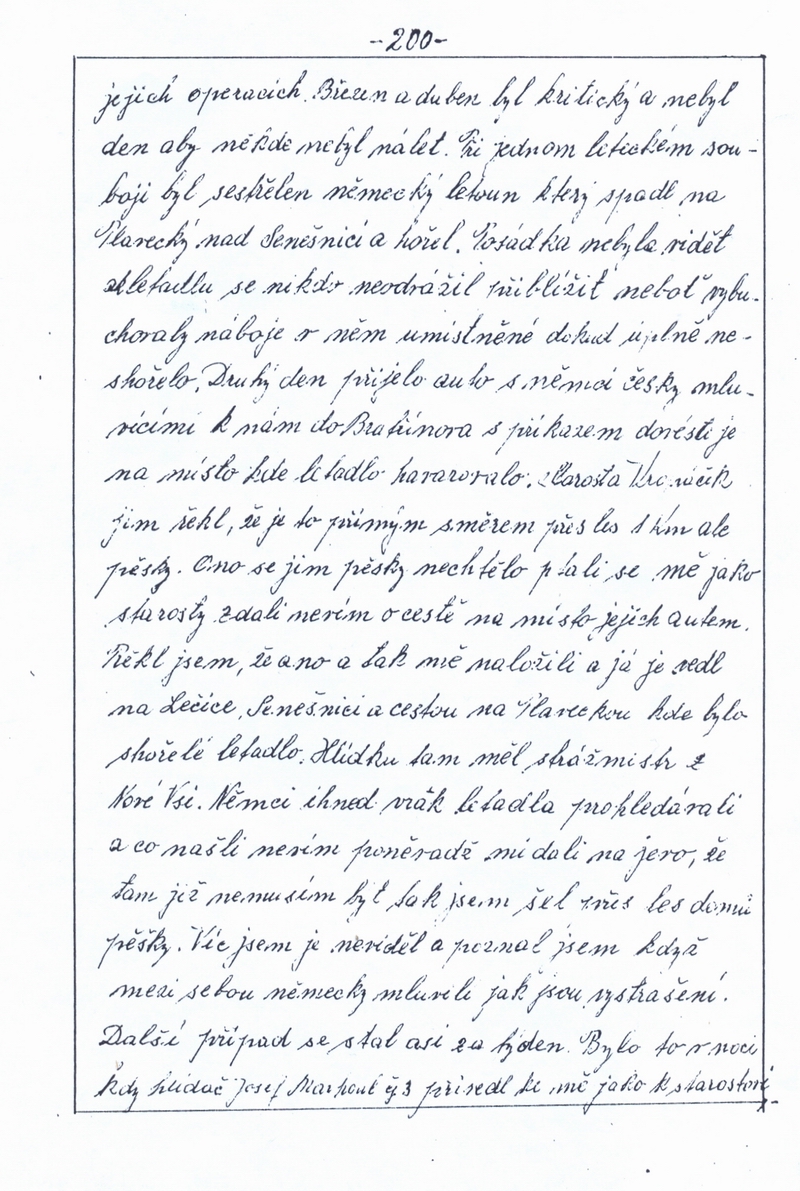 -200-
jejich operacích. Březen a duben byl kritický a nebyl
den aby někde nebyl nálet. Při jednom leteckém sou-
boji byl sestřelen německý letoun který spadl na
Plavecký nad Senešnicí a hořel. Posádka nebyla vidět
a letadlu se nikdo neodvážil přiblížit neboť vybu-
chovaly náboje v něm umístněné dokud úplně ne-
shořelo. Druhý den přijelo auto s němci česky mlu-
vícími k nám do Bratřínova s příkazem dovésti je
na místo kde letadlo havarovalo. Starosta
jim řekl, že je to přímým směrem přes les 1 km ale
pěsky. Ono se jim pěsky nechtělo ptali se mě jako
starosty zdali nevím o cestě na místo jejich autem.
Řekl jsem, že ano a tak mě naložili a já je vedl
na Lečice, Senešnici a cestou na Plaveckou kde bylo
shořelé letadlo. Hlídku tam měl strážmistr z
Nové Vsi. Němci ihned vrak letadla prohledávali
a co našli nevím poněvadž mi dali na jevo, že
tam již nemusím být tak jsem šel přes les domů
pěšky. Víc jsem je neviděl a poznal jsem když
mezi sebou německy mluvili jak jsou vystrašení.
Další případ se stal asi za týden. Bylo to v noci
kdy hlídač Josef Marhoul čp 3 přivedl ke mě jako k starostovi